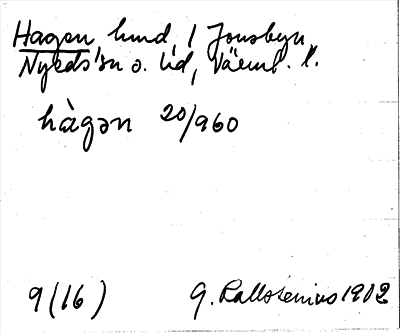 Hagen hmd, 1 Jonsbyn,
Nyeds sn o. hd, Värml. l.
hàgən 20/960
9(16) G. Kallstenius 1902